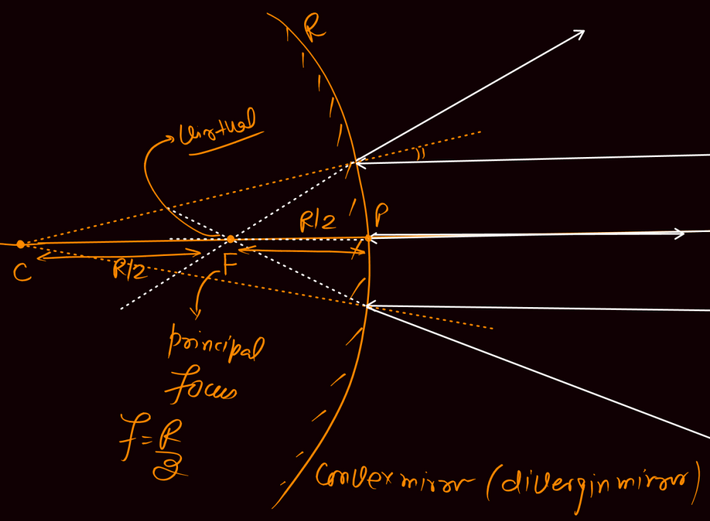 R
virtual
R/2
P
C
R/2
F
principal
focus
f = R
2
Convex mirror (divergin mirror)